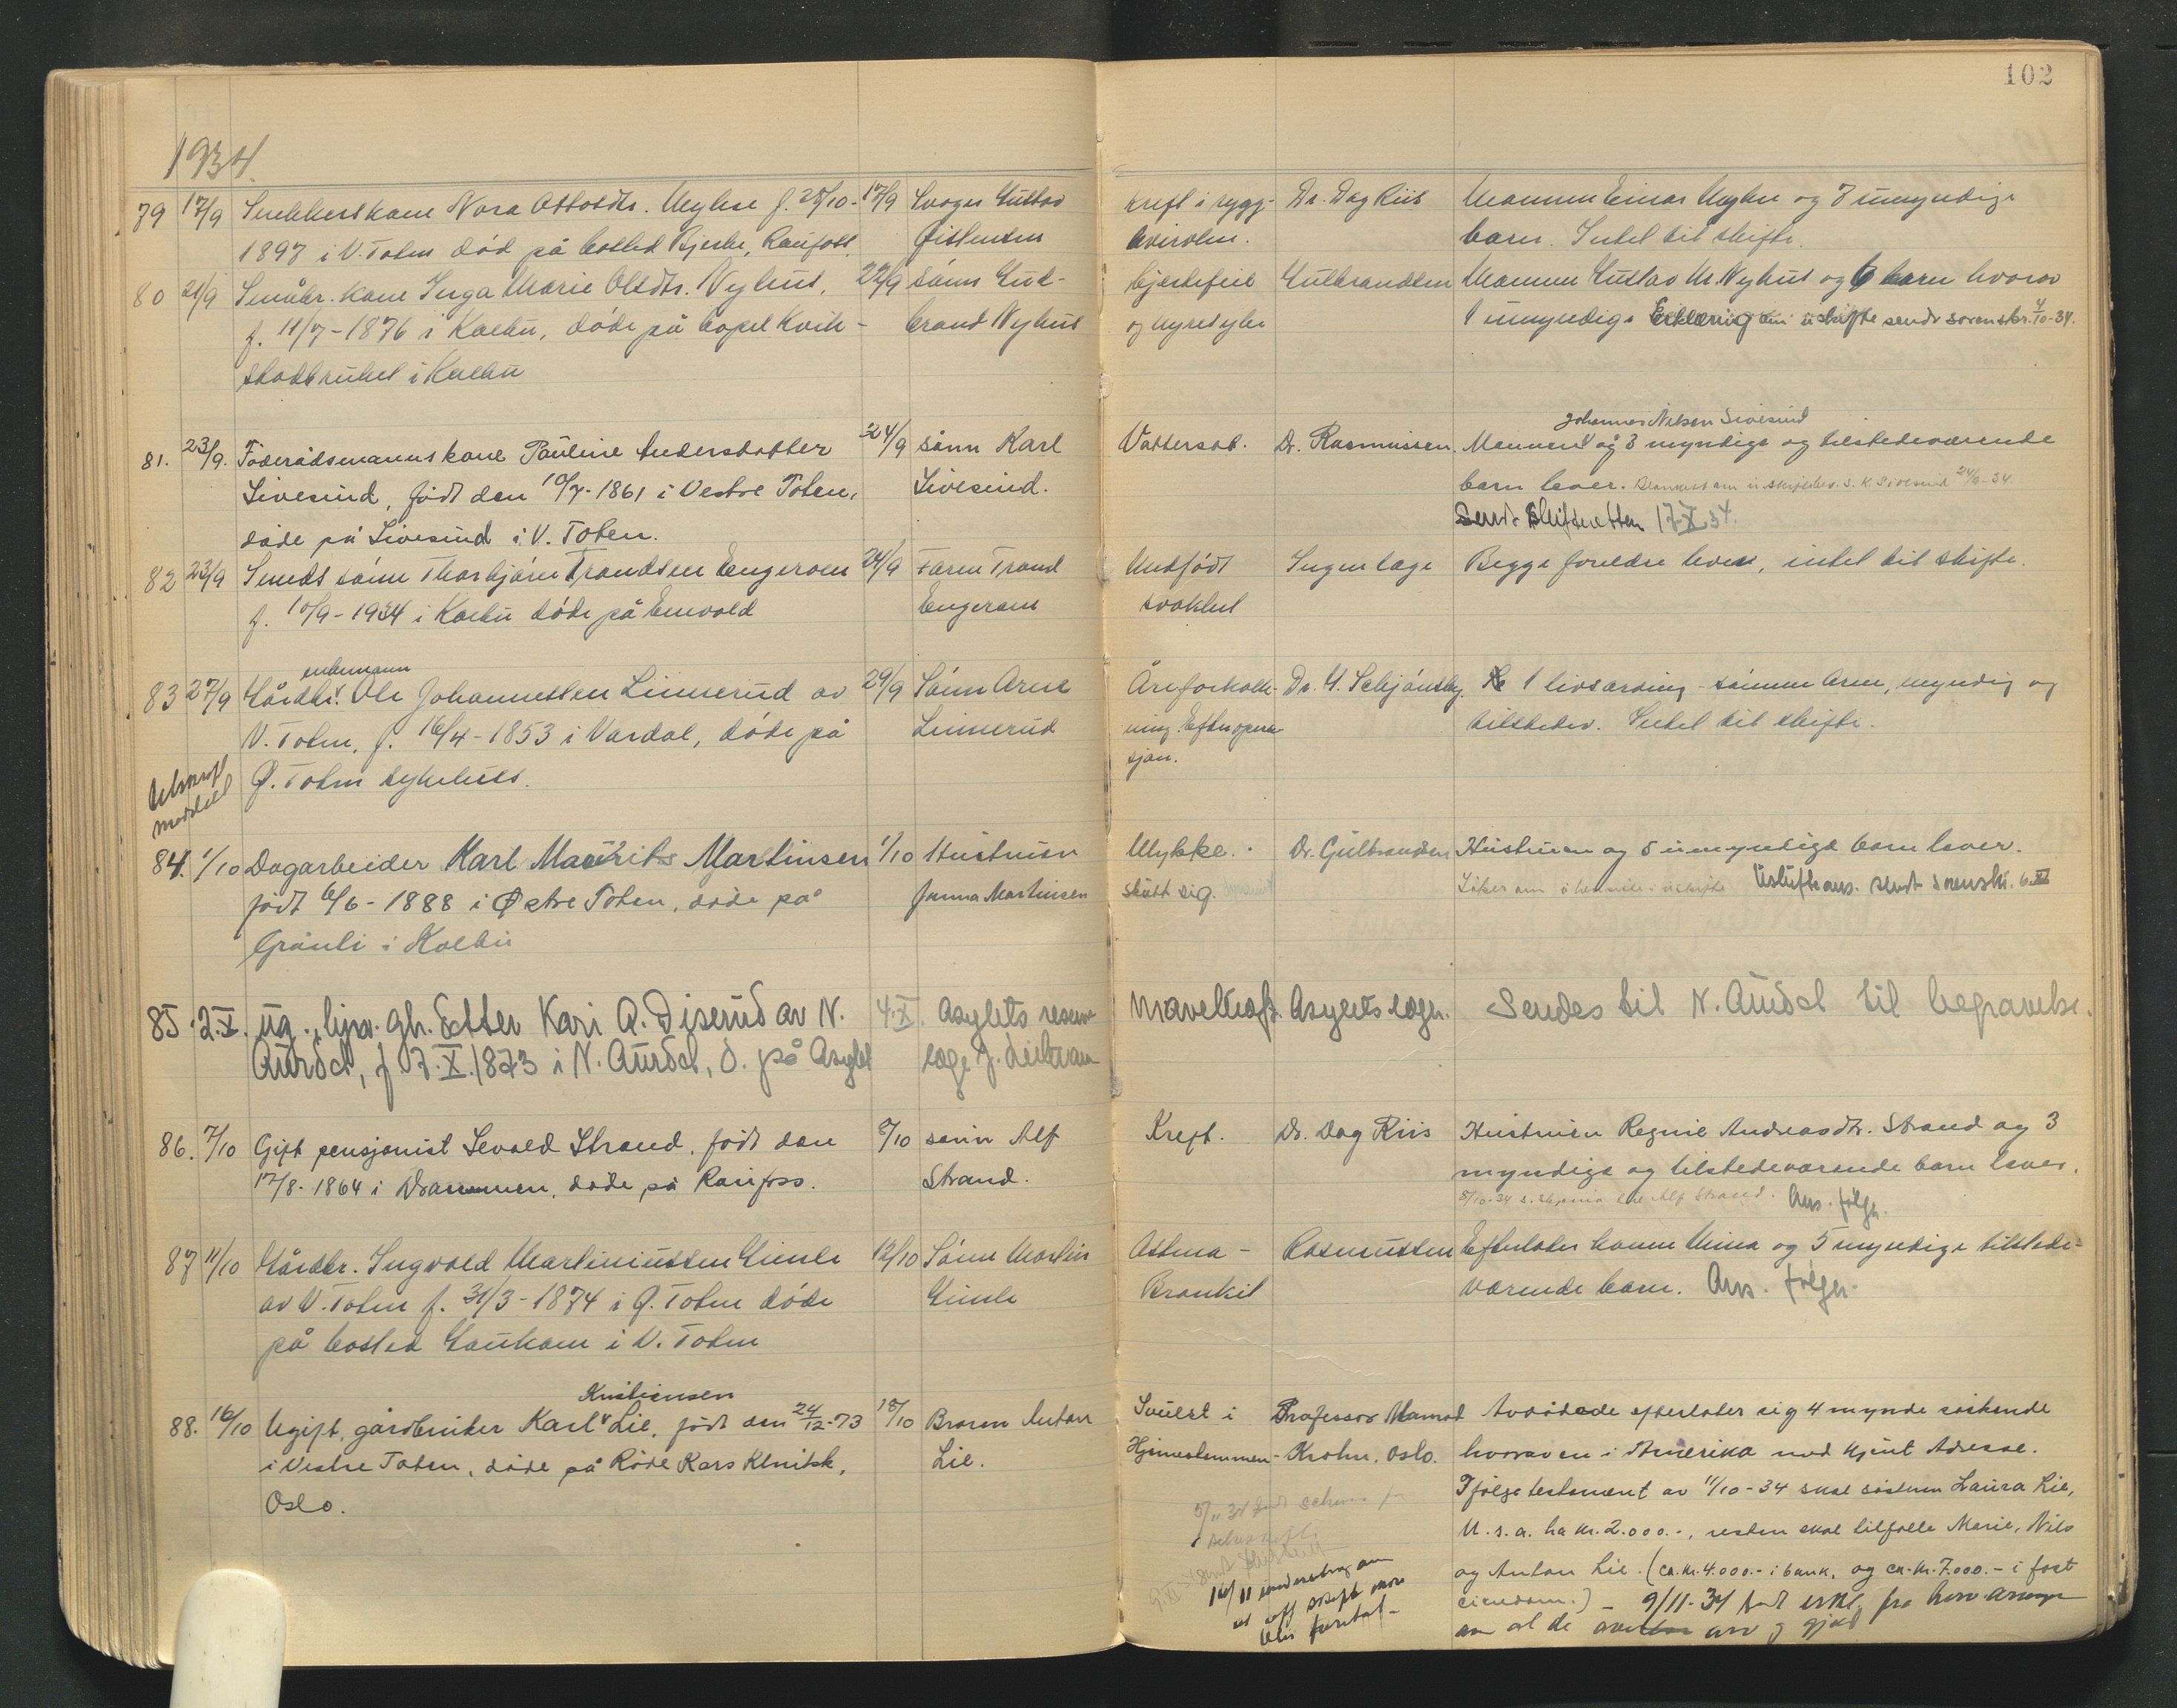 102
1934.
79 17/9 Snekkerskone Nora Ottosdtr. Myhre f. 28/10- 17/9 Svoger Gustav Kreft i rygg- Dr. Dag Riis Mannen Einar Myhre og 7 umyndige
1897 i V. Toten død på bosted Bjerke, Raufoss. Øistensen hvirvlen. barn. Intet til skifte.
80 21/9 Småbr. kone Inga Marie Olsdtr. Nyhus, 22/9 sønn Gud- Hjertefeil Gulbrandsen Mannen Gustav M. Nyhus og 6 barn hvorav
f. 11/7-1876 i Kolbu, døde på brand Nyhus og nyresyke 1 umyndig. Erklæring om uskifte sendt sorenskr. 4/10-34.
i Kolbu
Johannes Nilsen Sivesind
81. 23/9. Føderådsmannskone Pauline Andersdatter 24/9 sønn Karl Vattersot. Dr. Rasmussen. Mannen og 3 myndige og tilstedeværende
Sivesind, født den 10/7-1861 i Vestre Toten, Sivesind. barn lever. K. Sivesind 24/9-34
døde på Sivesind i V. Toten. Sendt skifteretten 17.X.34.
82 23/9 Smeds sønn Thorbjørn Trondsen Engeroen 24/9 Faren Trond Medfødt Ingen læge Begge foreldre lever, intet til skifte.
f. 10/9-1934 i Kolbu døde på Engeroen svakhet
enkemann
83 27/9 Gårdbr. Ole Johannessen Linnerud av 29/9 Sønn Arne Åreforkalk- Dr. G. Schjønsby. 1 livsarving - sønnen Arne, myndig og
V. Toten, f. 16/4-1853 i Vardal, døde på Linnerud ning. Efter opera- tilstede. Intet til skifte.
Ø. Toten sykehus. sjon.
84. 1/10 Dagarbeider Karl Mauritz Martinsen 1/10 Hustruen Ulykke. Dr. Gulbrandsen Hustruen og 5 umyndige barn lever.
født 6/6-1888 i Østre Toten, døde på Martinsen skutt sig. sendt sorenskr. 6.XI
Grønli i Kolbu
85. 2.X. ug., hjv. gh. Datter Kari A. Diserud av N. 4.X. Asylets reserve Mavekreft. Asylets læge. Sendes til N. Aurdal til begravelse.
Aurdal, f 7.X.1873 i N. Aurdal, d. på Asylet læge J.
86. 7/10 Gift pensjonist Sevald Strand, født den 8/10 sønn Alf Kreft. Dr. Dag Riis Hustruen Regine Andreasdtr. Strand og 3
17/8-1864 i Drammen, døde på Raufoss. Strand. myndige og tilstedeværende barn lever.
8/10-34 Alf Strand. Ans. følger.
87 11/10 Gårdbr. Ingvald Martiniussen Gimle 12/10 Sønn Martin Astma - Rasmussen Efterlater konen Mina og 5 myndige tilstede-
av V. Toten f. 31/3-1874 i Ø. Toten døde Gimle Bronkit værende barn. Ans. følger.
på bosted Gaukom i V. Toten
Kristiansen
88. 16/10 Ugift, gårdbruker Karl Lie, født den 24/12-73 18/10 Broren Anton Svulst i Professor Monrad Avdøde efterlater sig 4 mynde søskende
i Vestre Toten, døde på Røde Kors Klinikk, Lie. Hjernestammen - Krohn, Oslo. hvorav en i Amerika med kjent Adresse.
Oslo. Ifølge testament av 11/10-34 skal søsteren Laura Lie,
U.S.A. ha kr. 2.000.-, resten skal tilfalle Marie, Nils
og Anton Lie. (ca. kr. 4.000.- i bank, og ca. kr. 7.000.- i fast
eiendom.) - 9/11-34 fra
om at de arv og gjæld